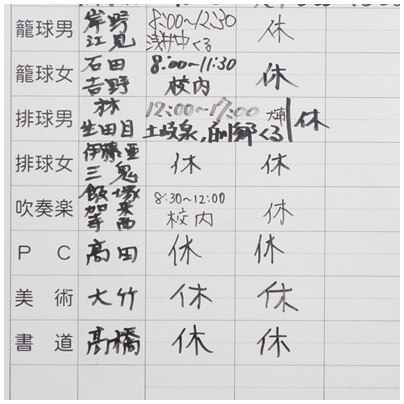 籠球男 岸野 8:00~12:30 休
江見 浅井中くる
籠球女 石田 8:00~11:30 休
吉野 校内
排球男 林 12:00~17:00 休
生田目 土岐泉,削郷くる
排球女 伊藤亜 休 休
三鬼
吹奏楽 飯塚 8:30~12:00 休
加来 校内
寺西
PC 高田 休 休
美術 大竹 休 休
書道 髙橋 休 休